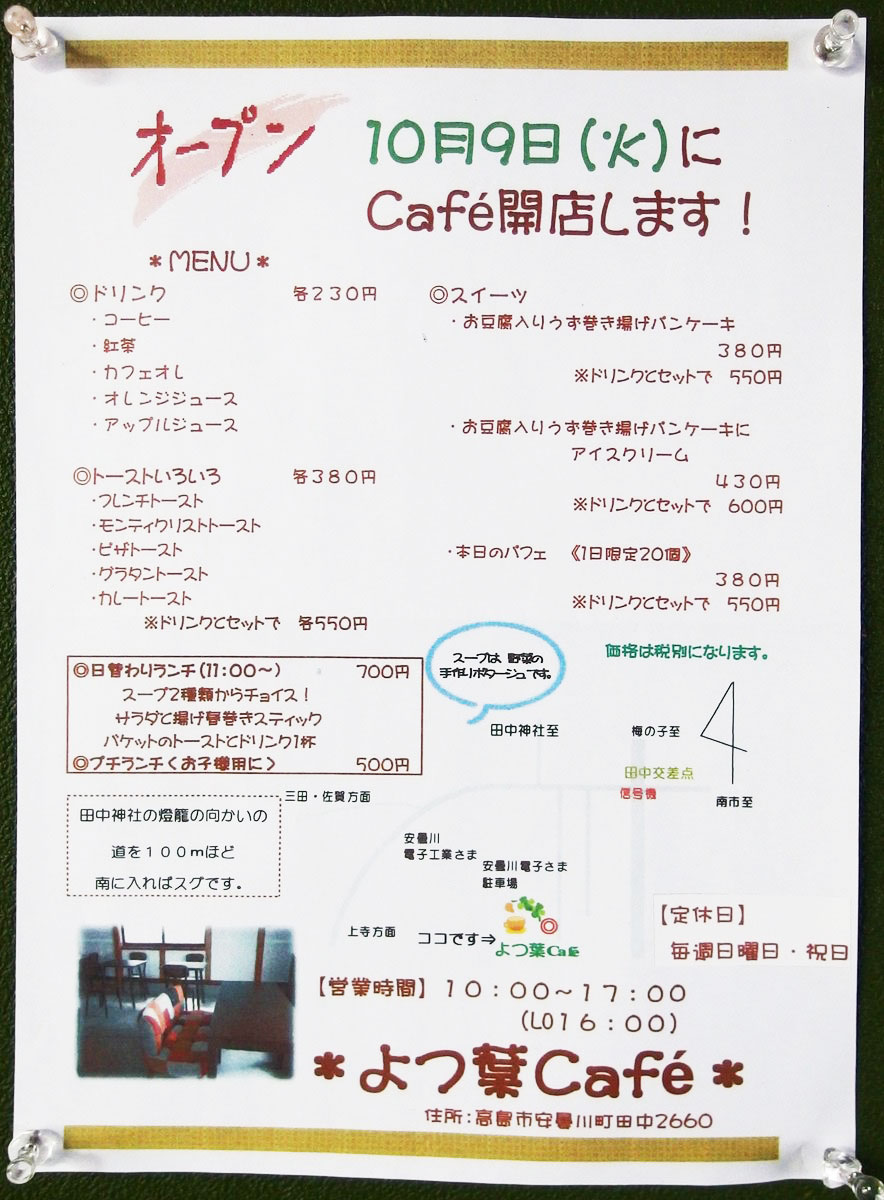 オープン
10月9日(火)に
Café開店します！
＊MENU＊
◎ドリンク 各230円
・コーヒー
・紅茶
・カフェオレ
・オレンジジュース
・アップルジュース
◎トーストいろいろ 各380円
・フレンチトースト
・モンティクリストトースト
・ピザトースト
・グラタントースト
・カレートースト
※ドリンクとセットで 各550円
◎スイーツ
・お豆腐入りうず巻き揚げパンケーキ
380円
※ドリンクとセットで 550円
・お豆腐入りうず巻き揚げパンケーキに
アイスクリーム
430円
※ドリンクとセットで 600円
・本日のパフェ 《1日限定20個》
380円
※ドリンクとセットで 550円
価格は税別になります。
◎日替わりランチ(11:00～) 700円
スープ2種類からチョイス！
サラダと揚げ春巻きスティック
バケットのトーストとドリンク1杯
◎プチランチ〈お子様用に〉 500円
スープは 野菜の
手作りポタージュです。
田中神社の燈籠の向かいの
道を100mほど
南に入ればスグです。
田中神社至
梅の子至
田中交差点
信号機
南市至
三田・佐賀方面
安曇川
電子工業さま
安曇川電子さま
駐車場
上寺方面
ココです⇒
よつ葉Café
【定休日】
毎週日曜日・祝日
【営業時間】10：00～17：00
(LO16：00)
＊よつ葉Café＊
住所：高島市安曇川町田中2660